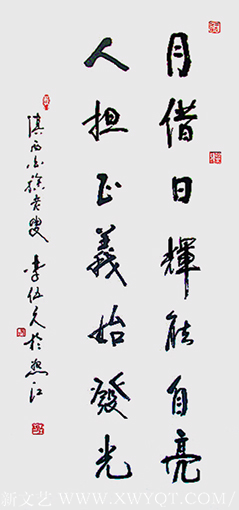 月借日輝能自亮
人担正義始發光
滇西老叟 李伍久於怒江
新文艺 WWW.XWYQT.COM